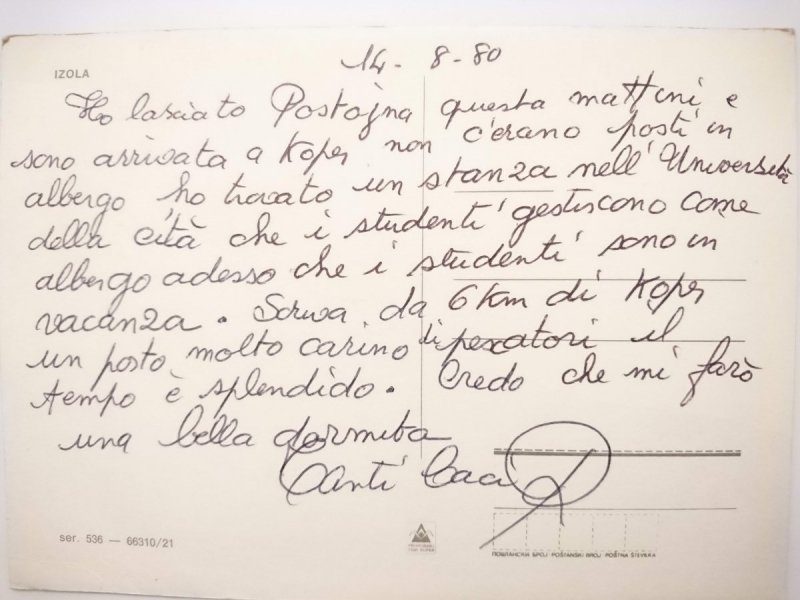 IZOLA
14 - 8 - 80
Ho lasciato Postojna questa mattini e
sono arrivata a Koper non c'erano posti in
albergo ho trovato un stanza nell'Università
della città che i studenti gestiscono come
albergo adesso che i studenti sono in
vacanza. Scrivo da 6 km di Koper
un posto molto carino di pescatori il
tempo è splendido. Credo che mi farò
una bella dormita
Tanti baci
ser. 536 — 66310/21
ПОШТАНСКИ БРОЈ POŠTANSKI BROJ POŠTNA ŠTEVILKA